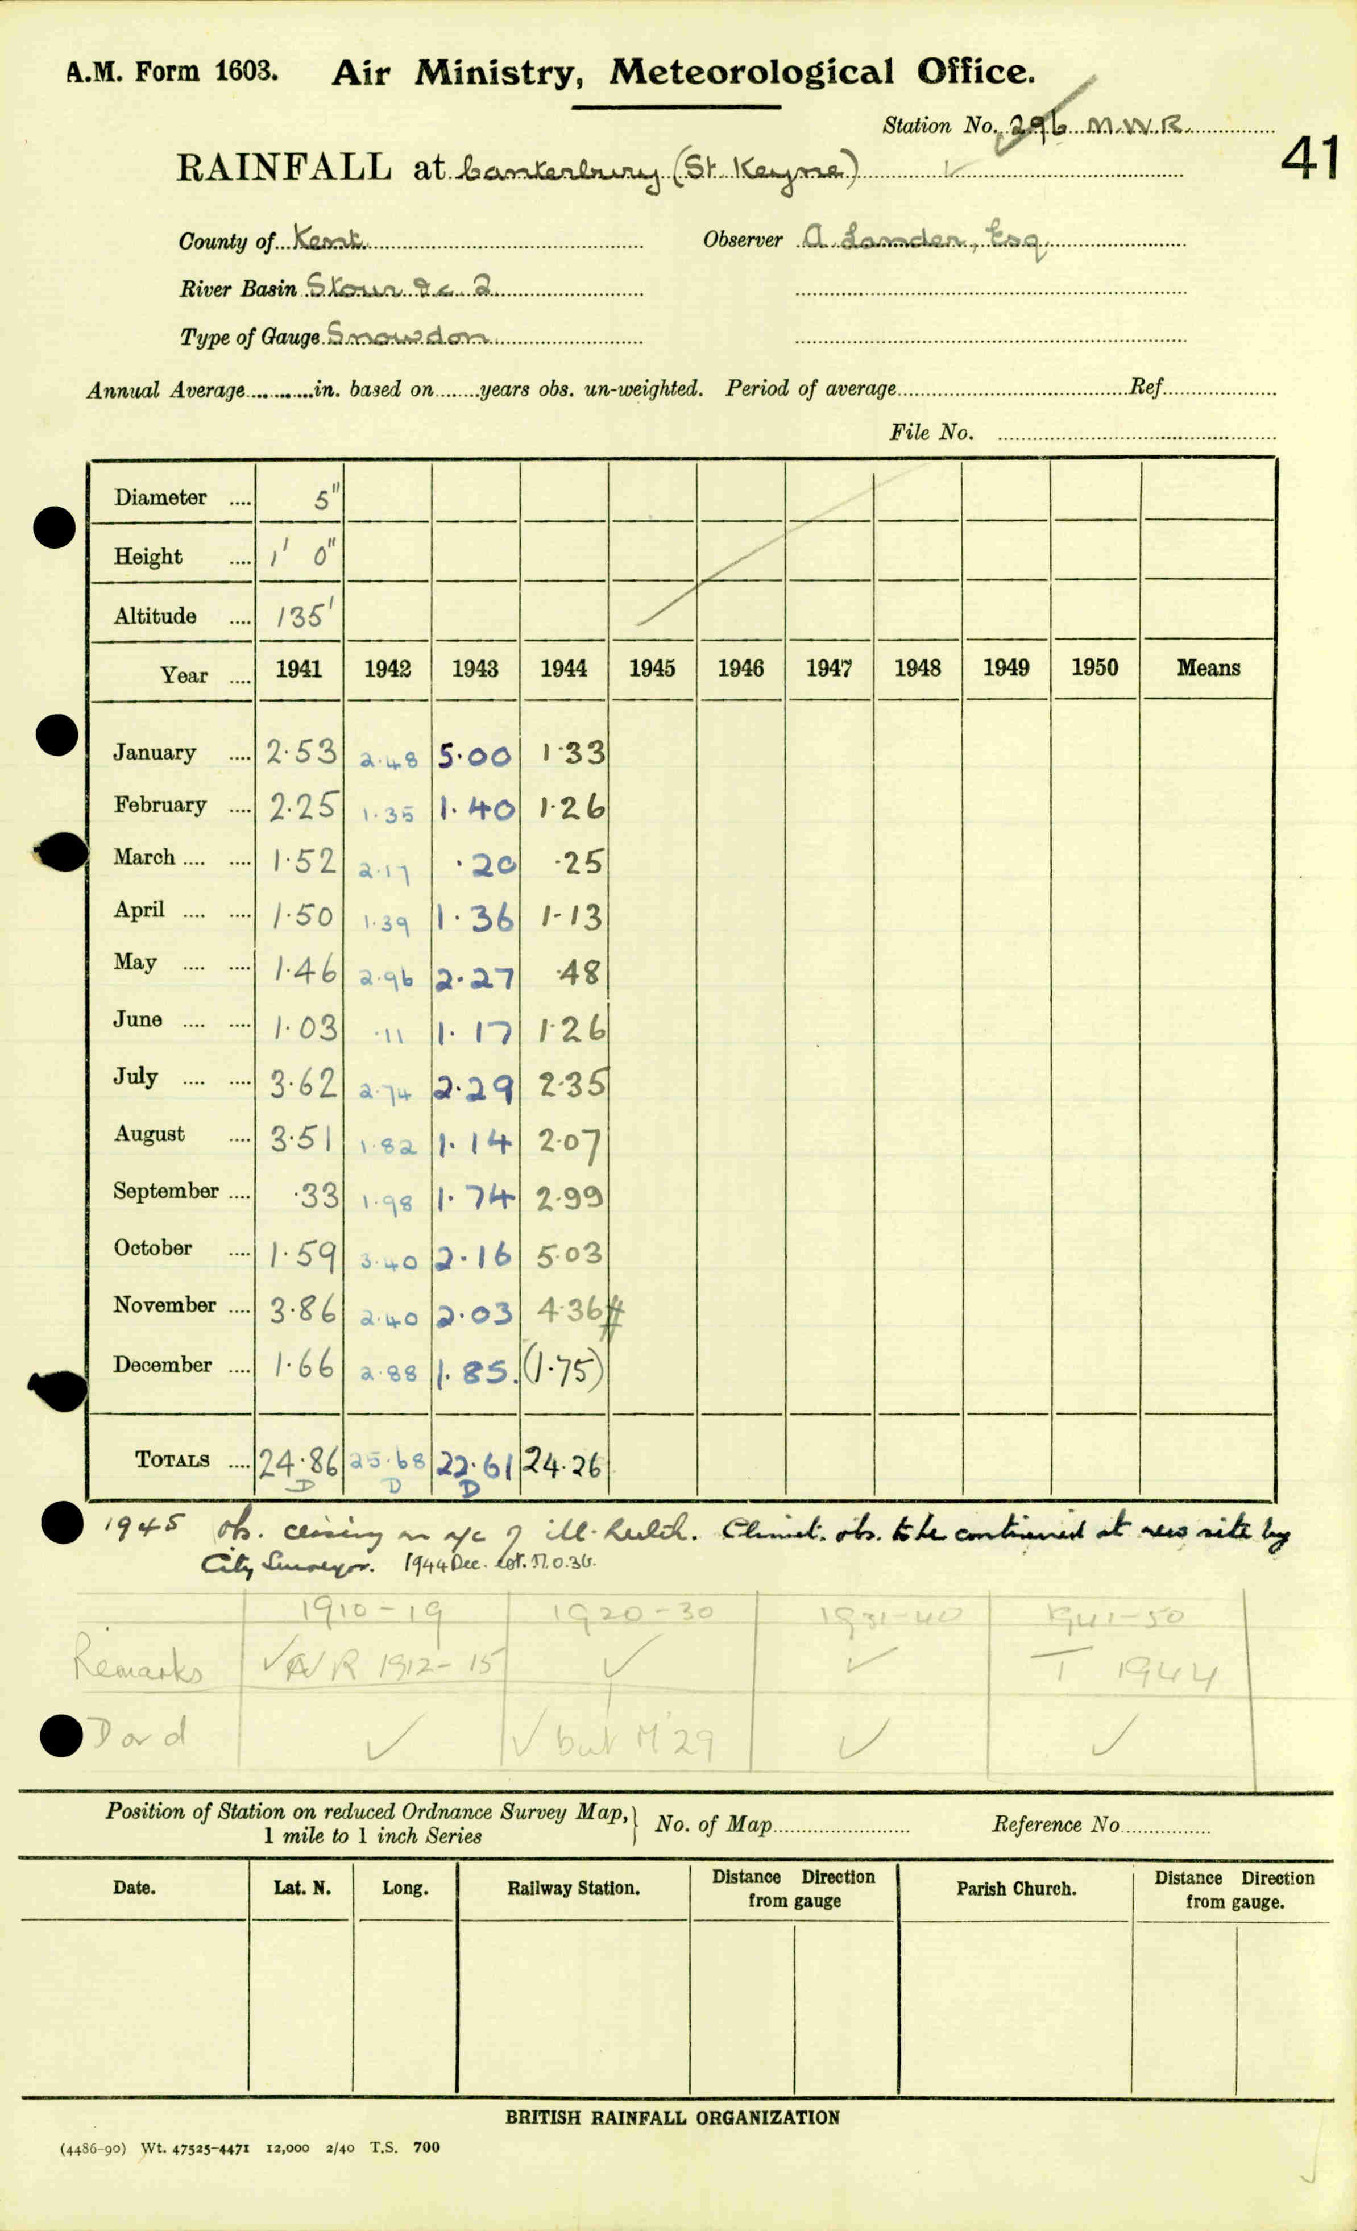 A.M. Form 1603. Air Ministry, Meteorological Office.
Station No. 296 M.W.R.
41
RAINFALL at Canterbury (St Keyne)
County of Kent Observer A Lander, Esq
River Basin Stour &c 2
Type of Gauge Snowdon
Annual Average............in. based on........years obs. un-weighted. Period of average........ Ref........
File No. ........
Diameter .... 5"
Height .... 1' 0"
Altitude .... 135'
Year .... 1941 1942 1943 1944 1945 1946 1947 1948 1949 1950 Means
January .... 2.53 2.48 5.00 1.33
February .... 2.25 1.35 1.40 1.26
March .... .... 1.52 2.17 .20 .25
April .... .... 1.50 1.39 1.36 1.13
May .... .... 1.46 2.96 2.27 .48
June .... .... 1.03 .11 1.17 1.26
July .... .... 3.62 2.74 2.29 2.35
August .... 3.51 1.82 1.14 2.07
September .... .33 1.98 1.74 2.99
October .... 1.59 3.40 2.16 5.03
November .... 3.86 2.40 2.03 4.36 #
December .... 1.66 2.88 1.85. (1.75)
TOTALS .... 24.86 25.68 22.61 24.26
D D D
1945 ob. ceasing on a/c of ill-health. Climat. obs. to be continued at new site by
City Surveyor. 1944 Dec. est. M.O.3b.
1910-19 1920-30 1931-40 1941-50
Remarks ✓ R 1912-15 ✓ ✓ T 1944
D or d ✓ ✓ but M '29 ✓ ✓
Position of Station on reduced Ordnance Survey Map,} No. of Map........ Reference No........
1 mile to 1 inch Series
Date. Lat. N. Long. Railway Station. Distance Direction from gauge Parish Church. Distance Direction from gauge.
BRITISH RAINFALL ORGANIZATION
(4486-90) Wt. 47525-4471 12,000 2/40 T.S. 700